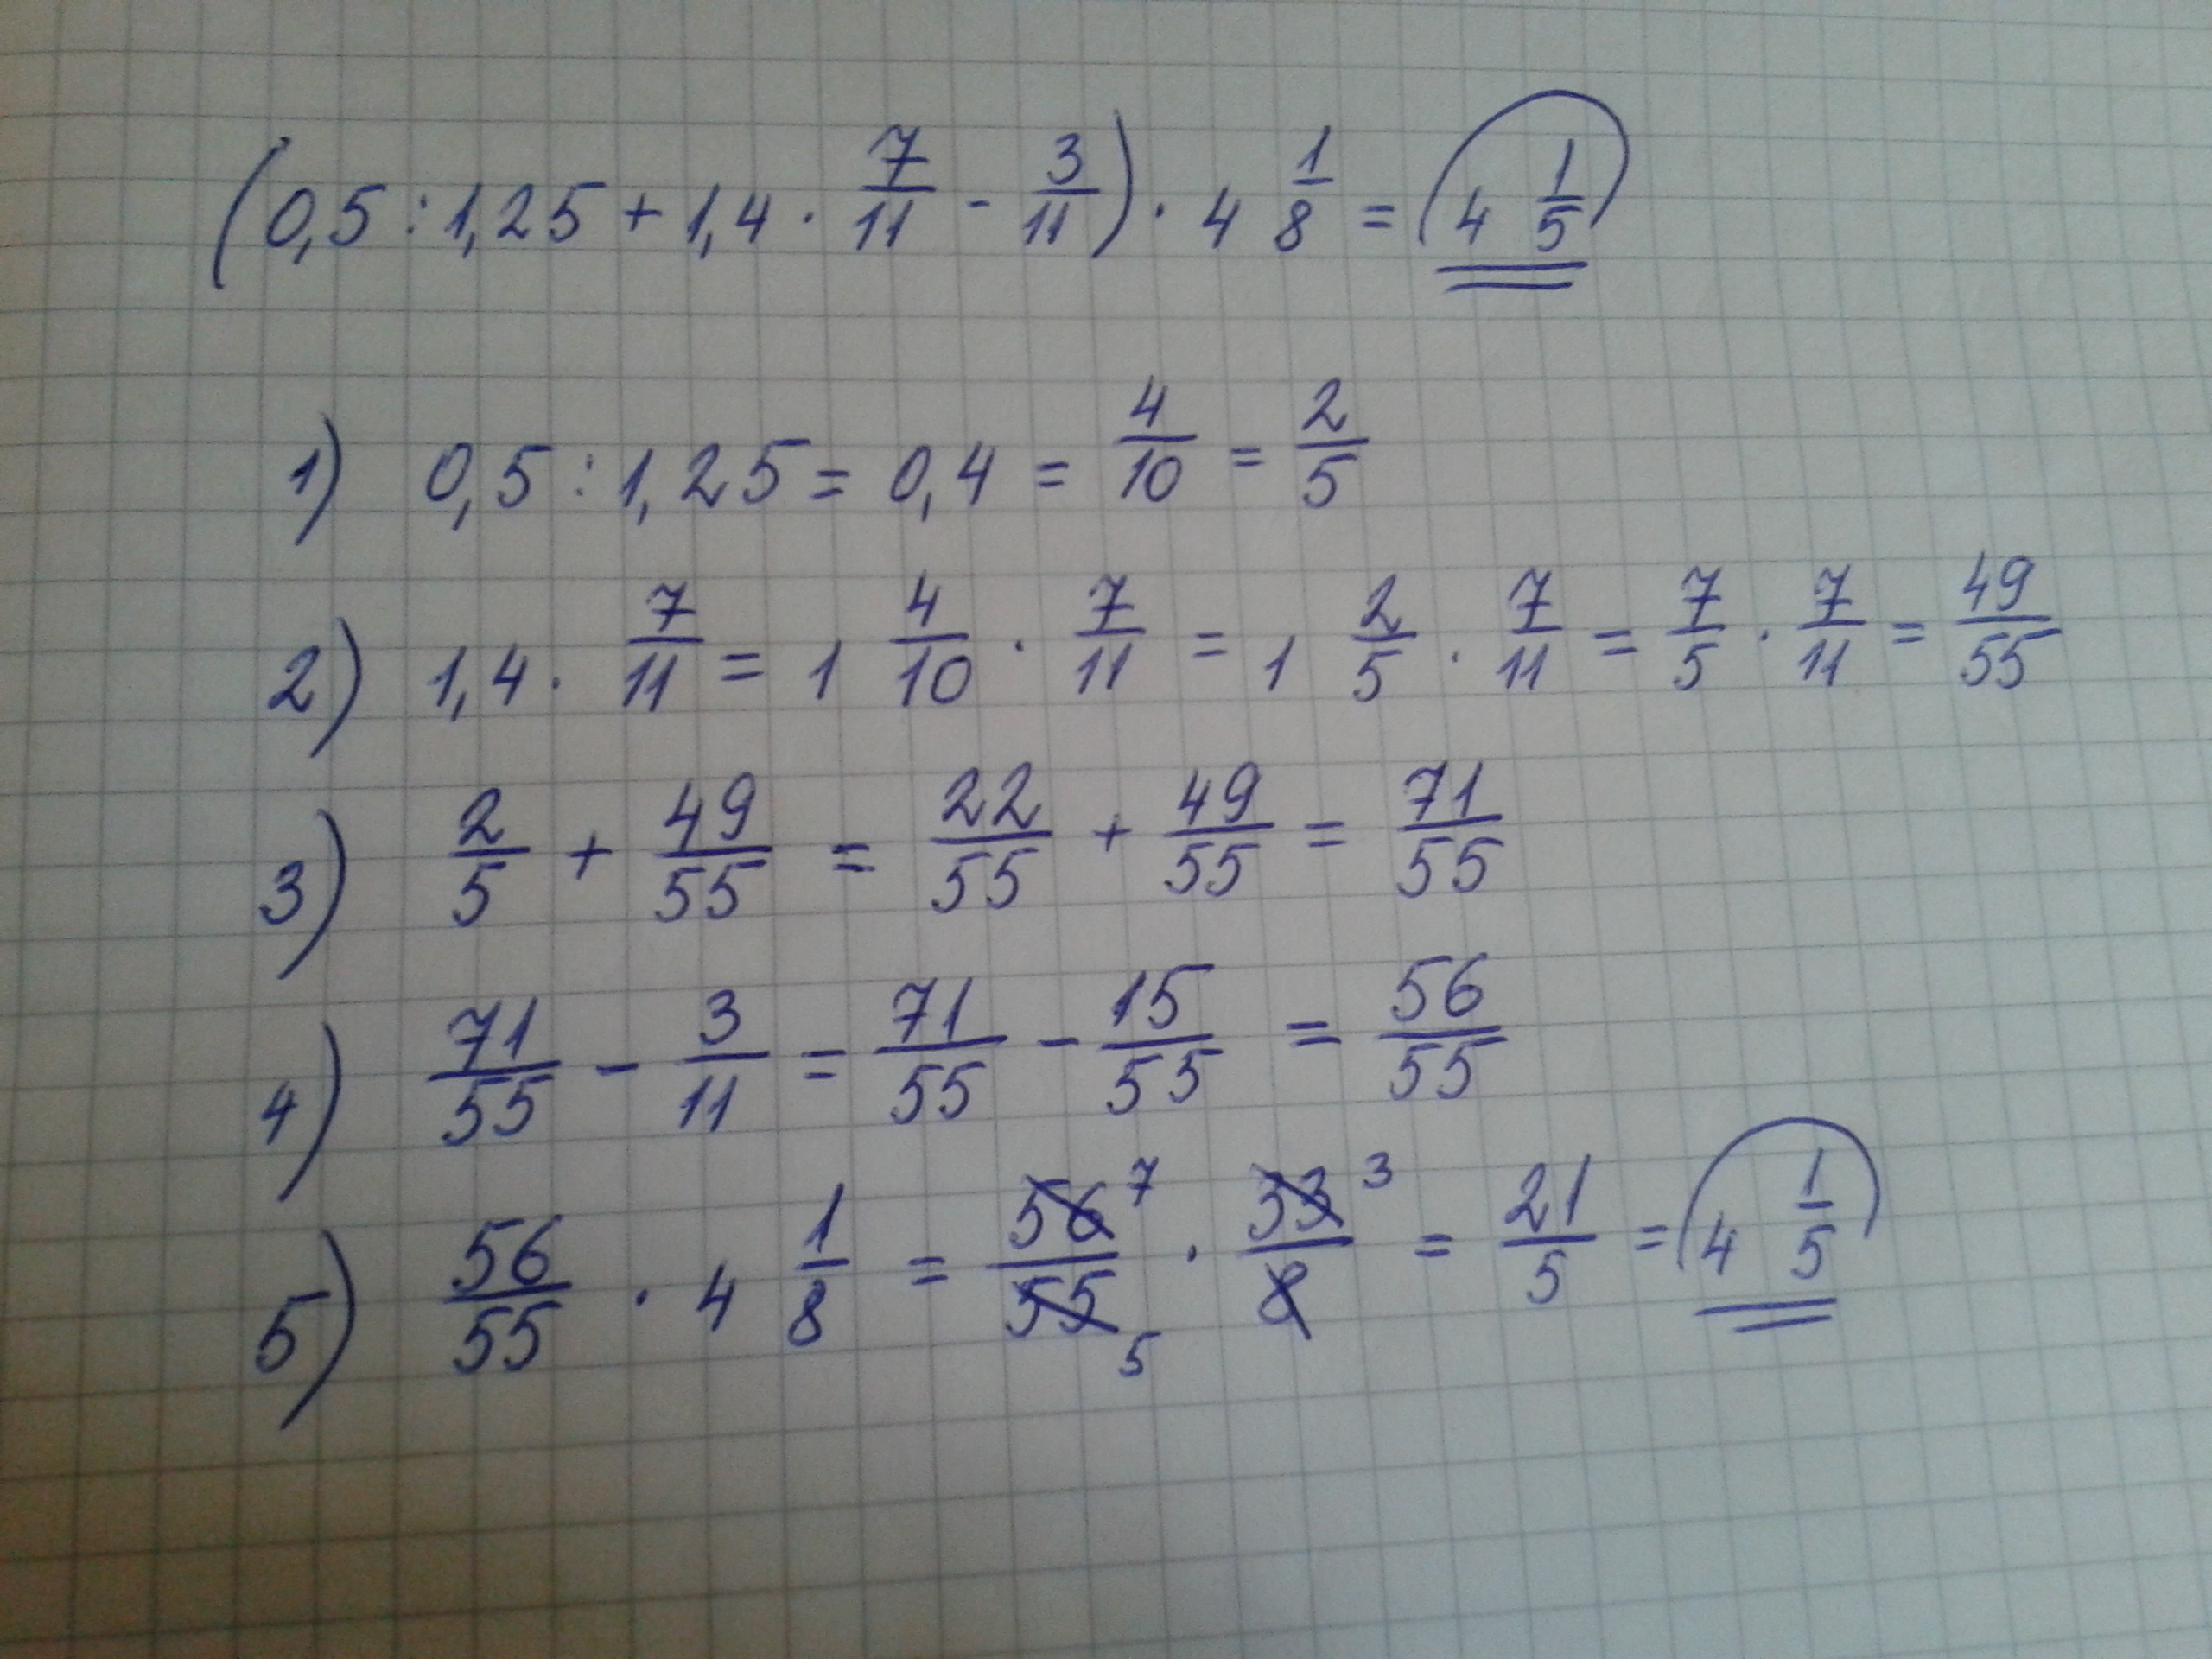 (0,5 : 1,25 + 1,4 · 7/11 - 3/11) · 4 1/8 = (4 1/5)
1) 0,5 : 1,25 = 0,4 = 4/10 = 2/5
2) 1,4 · 7/11 = 1 4/10 · 7/11 = 1 2/5 · 7/11 = 7/5 · 7/11 = 49/55
3) 2/5 + 49/55 = 22/55 + 49/55 = 71/55
4) 71/55 - 3/11 = 71/55 - 15/55 = 56/55
5) 56/55 · 4 1/8 = 56 7/55 5 · 33 3/8 = 21/5 = (4 1/5)